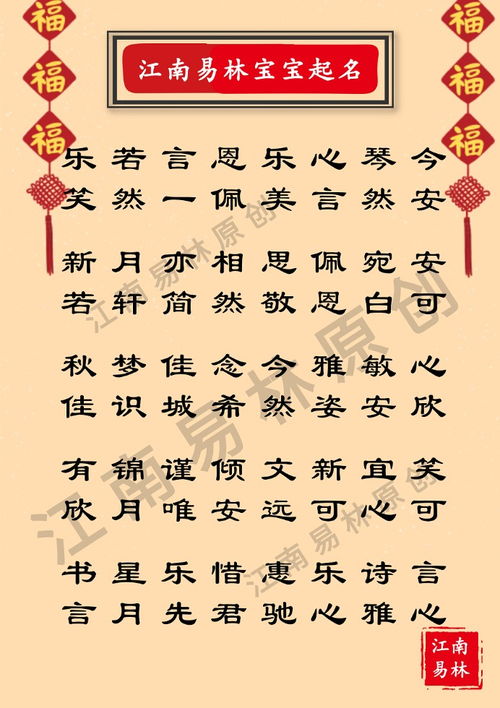 福
福
福
福
福
福
江南易林宝宝起名
乐若言恩乐心琴今
笑然一佩美言然安
新月亦相思佩宛安
若轩简然敬恩白可
秋梦佳念今雅敏心
佳识城希然姿安欣
有锦谨倾文新宜笑
欣月唯安远可心可
书星乐惜惠乐诗言
言月先君驰心雅心
江南易林原创
江南易林原创
江南易林原创
江南
易林